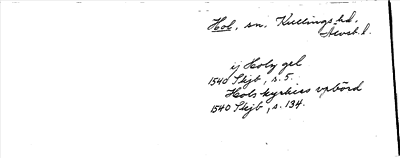 Hol, sn. Kullings hd,
Älvsb. l.
ij Holy gel
1540 Skjb, s. 5.
Hols kyrkies vpbörd
1540 Skjb, s. 134.